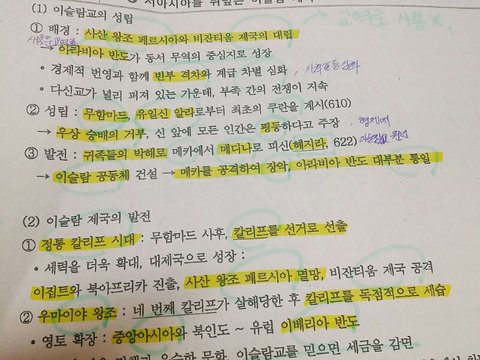 서아시아를 뒤덮은 이슬람 제국
(1) 이슬람교의 성립
① 배경 : 사산 왕조 페르시아와 비잔티움 제국의 대립
→ 아라비아 반도가 동서 무역의 중심지로 성장
• 경제적 번영과 함께 빈부 격차와 계급 차별 심화
• 다신교가 널리 퍼져 있는 가운데, 부족 간의 전쟁이 지속
② 성립 : 무함마드, 유일신 알라로부터 최초의 쿠란을 계시(610)
→ 우상 숭배의 거부, 신 앞에 모든 인간은 평등하다고 주장
③ 발전 : 귀족들의 박해로 메카에서 메디나로 피신(헤지라, 622)
→ 이슬람 공동체 건설 → 메카를 공격하여 장악, 아라비아 반도 대부분 통일
(2) 이슬람 제국의 발전
① 정통 칼리프 시대 : 무함마드 사후, 칼리프를 선거로 선출
• 세력을 더욱 확대, 대제국으로 성장 :
이집트와 북아프리카 진출, 사산 왕조 페르시아 멸망, 비잔티움 제국 공격
② 우마이야 왕조 : 네 번째 칼리프가 살해당한 후 칼리프를 독점적으로 세습
• 영토 확장 : 중앙아시아와 북인도 ~ 유럽 이베리아 반도
이슬람교를 믿으면 세금을 감면